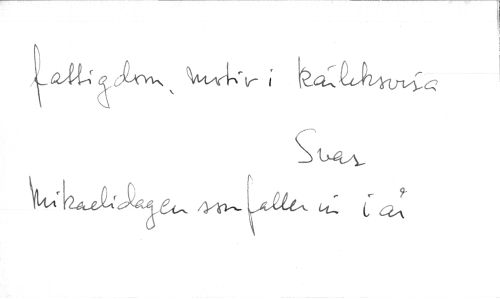 fattigdom, motiv i kärleksvisa
Svar
Mikaelidagen som faller in i år